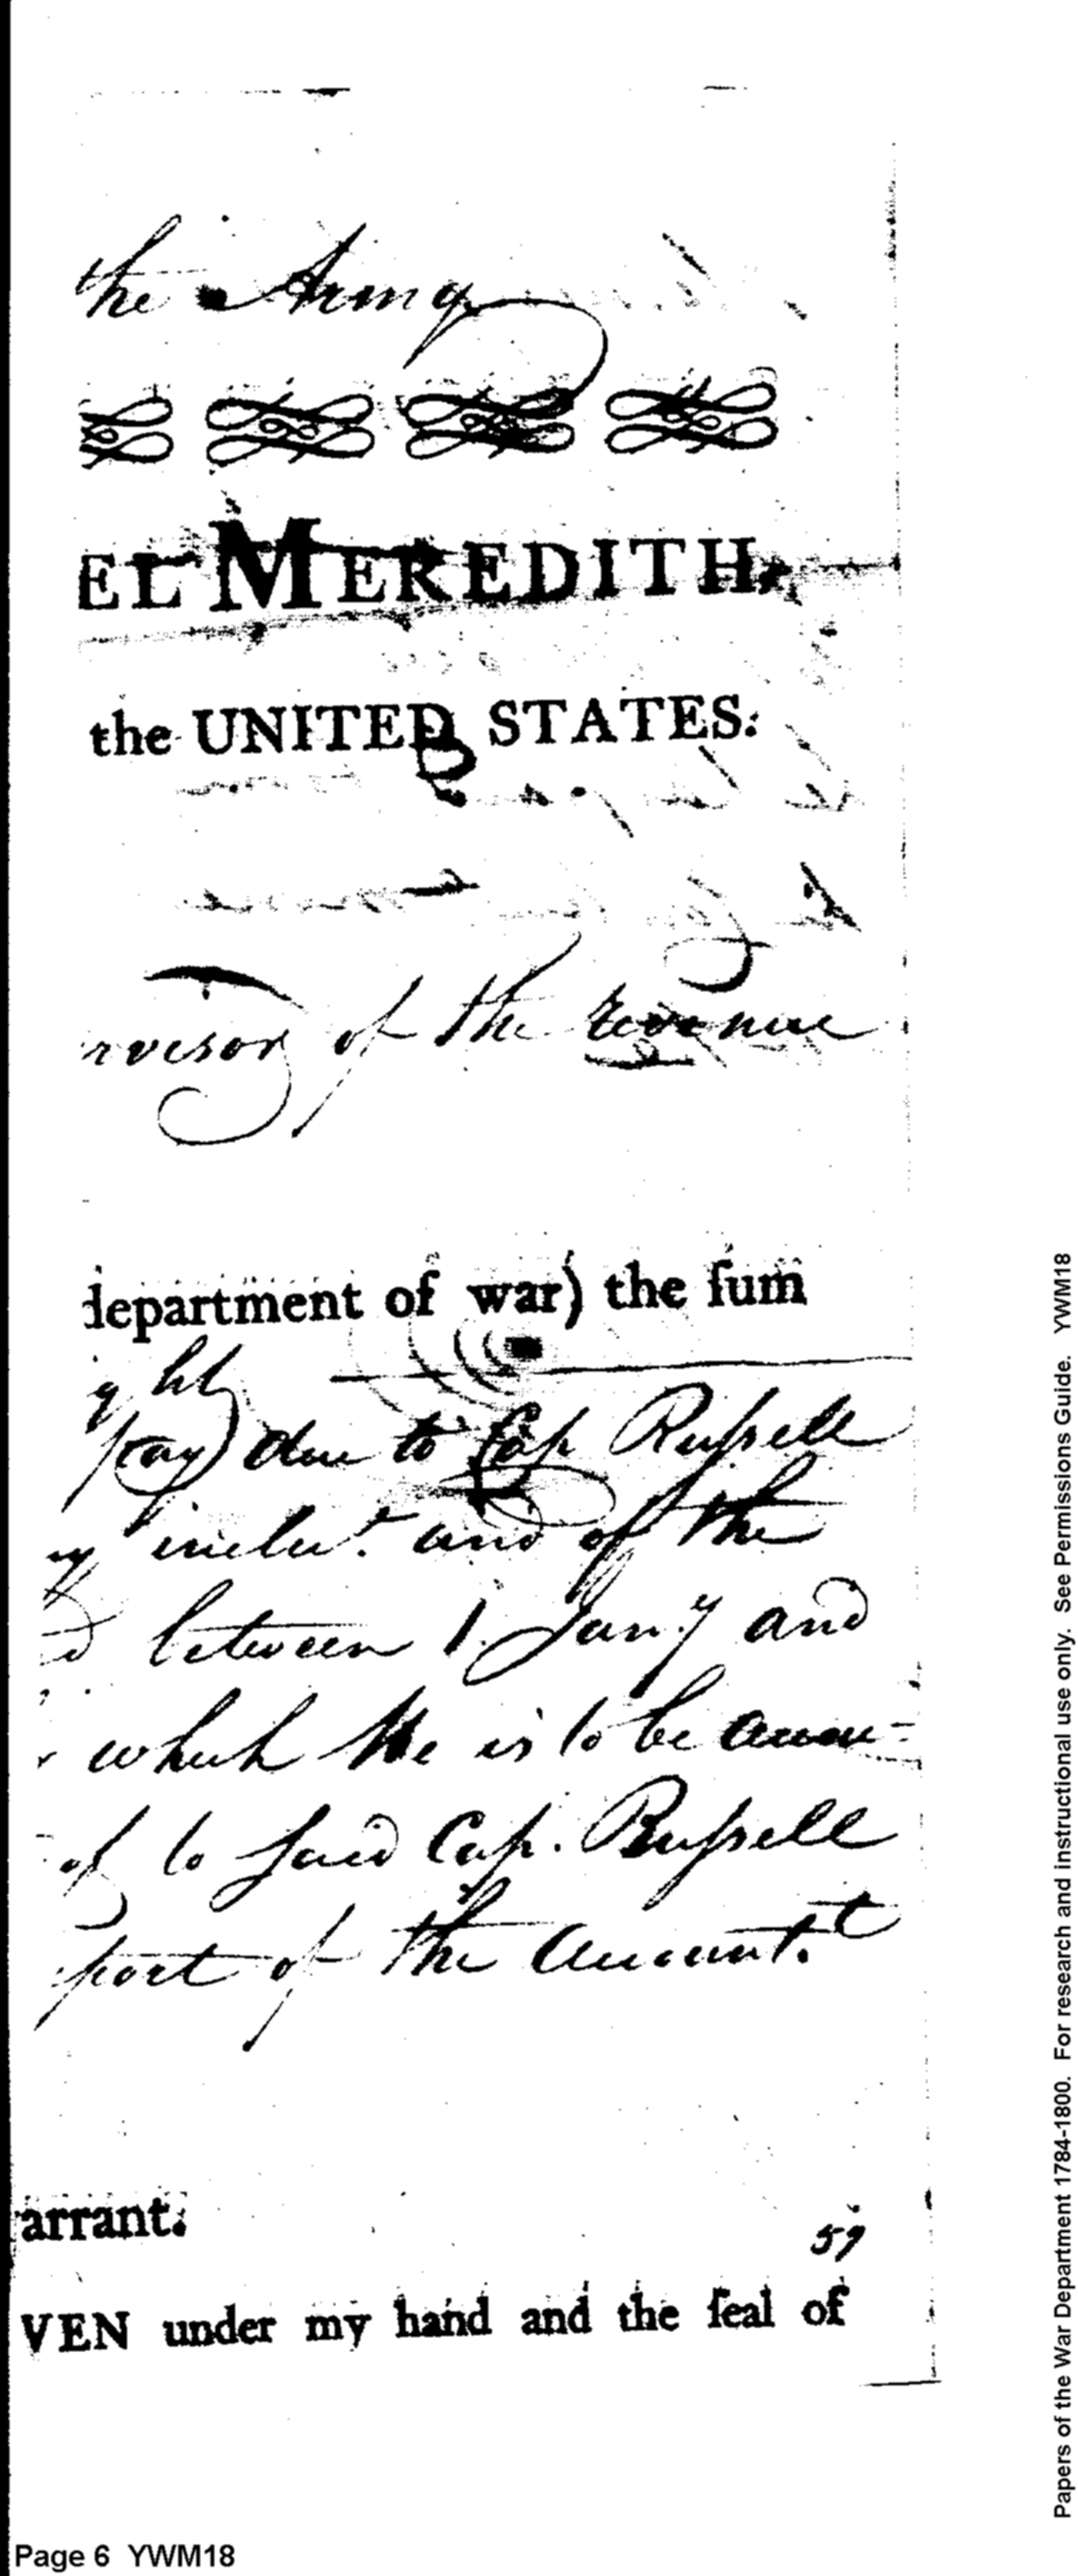 the Army
EL MEREDITH,
the UNITED STATES.
rvisor of the revenue
department of war) the ſum
ght
pay) due to Cap Ruſsell
inclu.e and of the
d between 1. Jany and
which He is to be accou-
of to said Cap. Ruſsell
port of the Account.t
arrant.
59
VEN under my hand and the ſeal of
Page 6 YWM18
Papers of the War Department 1784-1800. For research and instructional use only. See Permissions Guide. YWM18